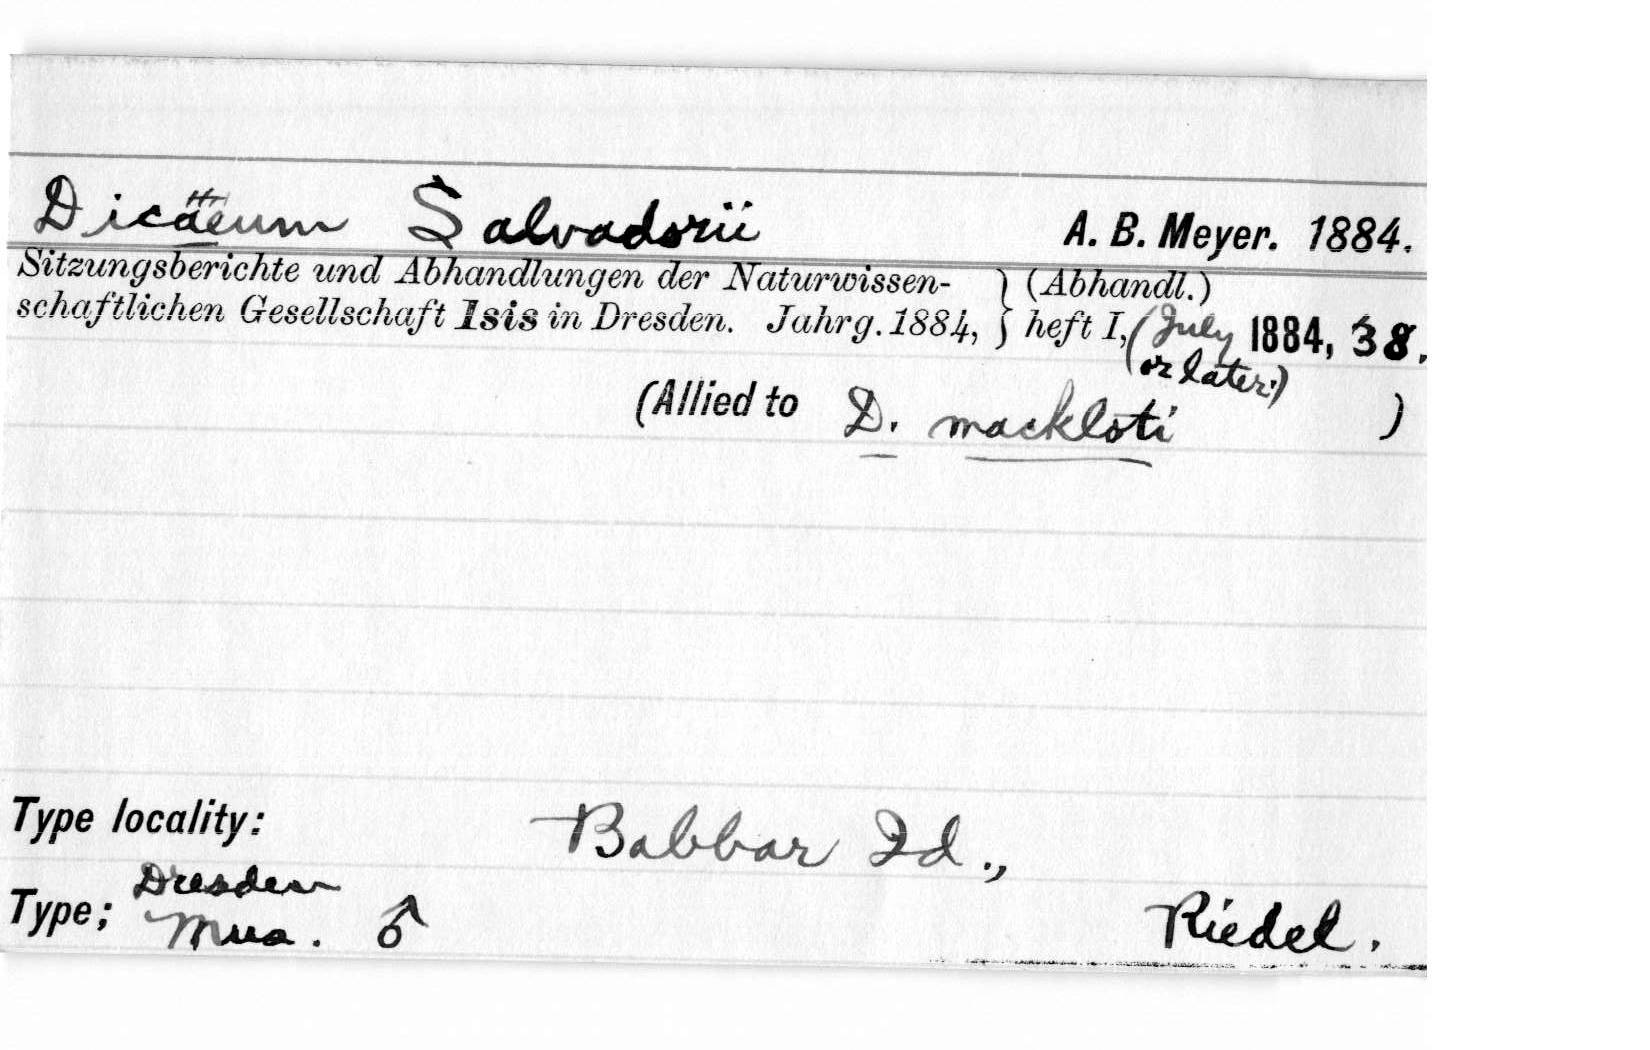 Dicaeum Salvadorii A. B. Meyer. 1884.
Sitzungsberichte und Abhandlungen der Naturwissen- } (Abhandl.)
schaftlichen Gesellschaft Isis in Dresden. Jahrg. 1884, } heft I, (July 1884, 38.
or later.)
(Allied to D. mackloti )
Type locality: Babbar Id.,
Dresden
Type; Mus. ♂ Riedel.